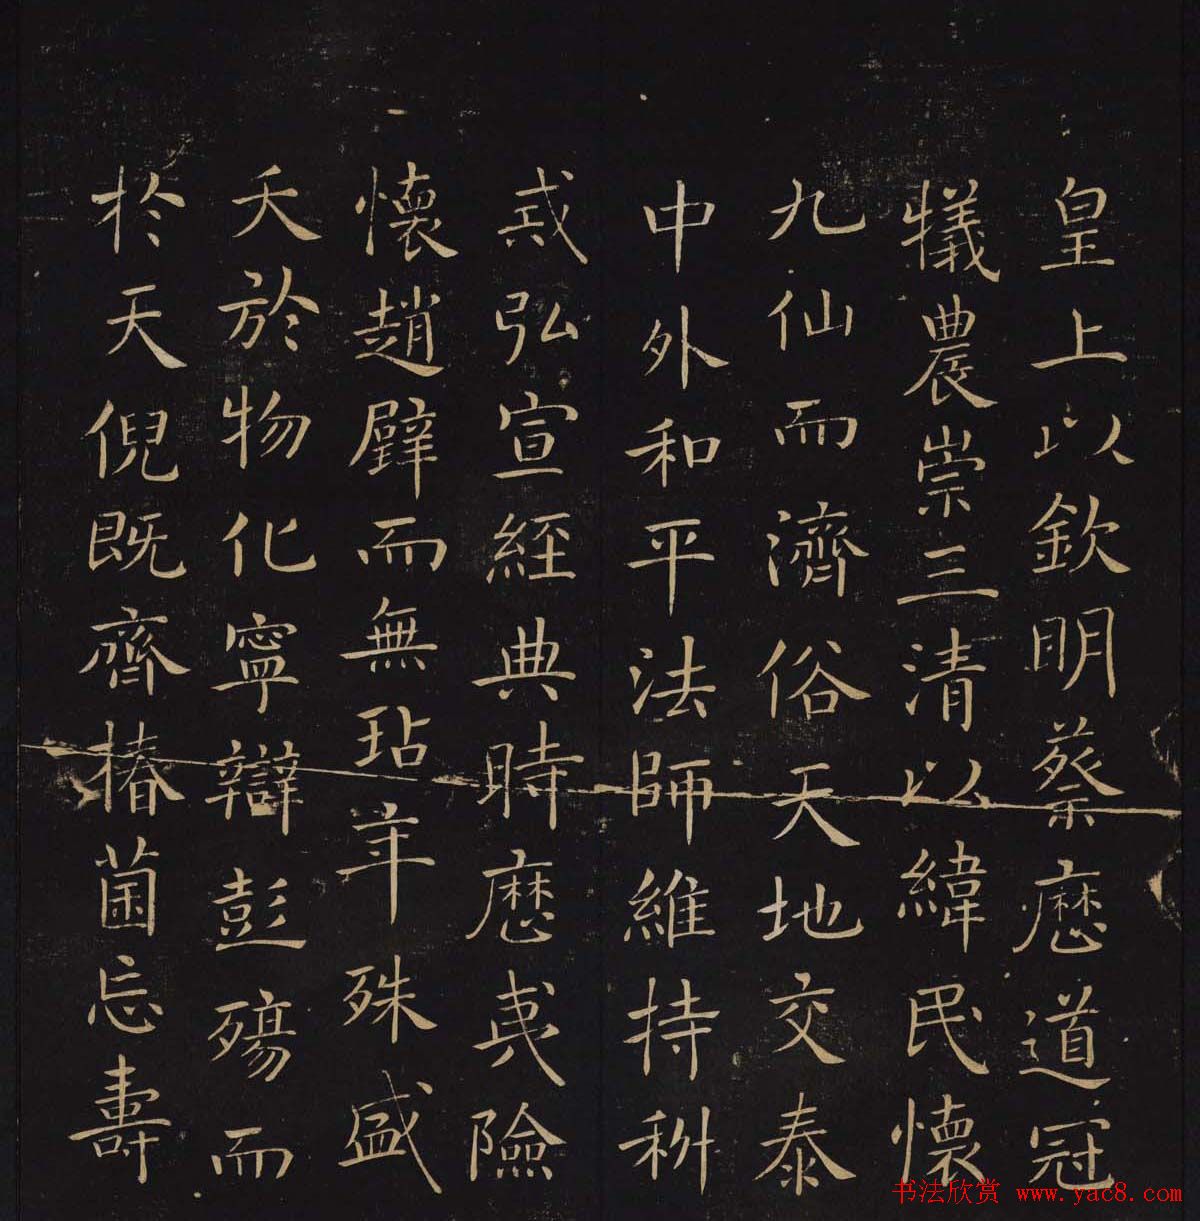 皇上以欽明蔡厯道冠
犧農崇三清以緯民懷
九仙而濟俗天地交泰
中外和平法師維持科
戒弘宣經典時厯夷險
懷趙璧而無玷年殊盛
夭於物化寧辯彭殤而
於天倪既齊椿菌忘壽
书法欣赏 www.yac8.com